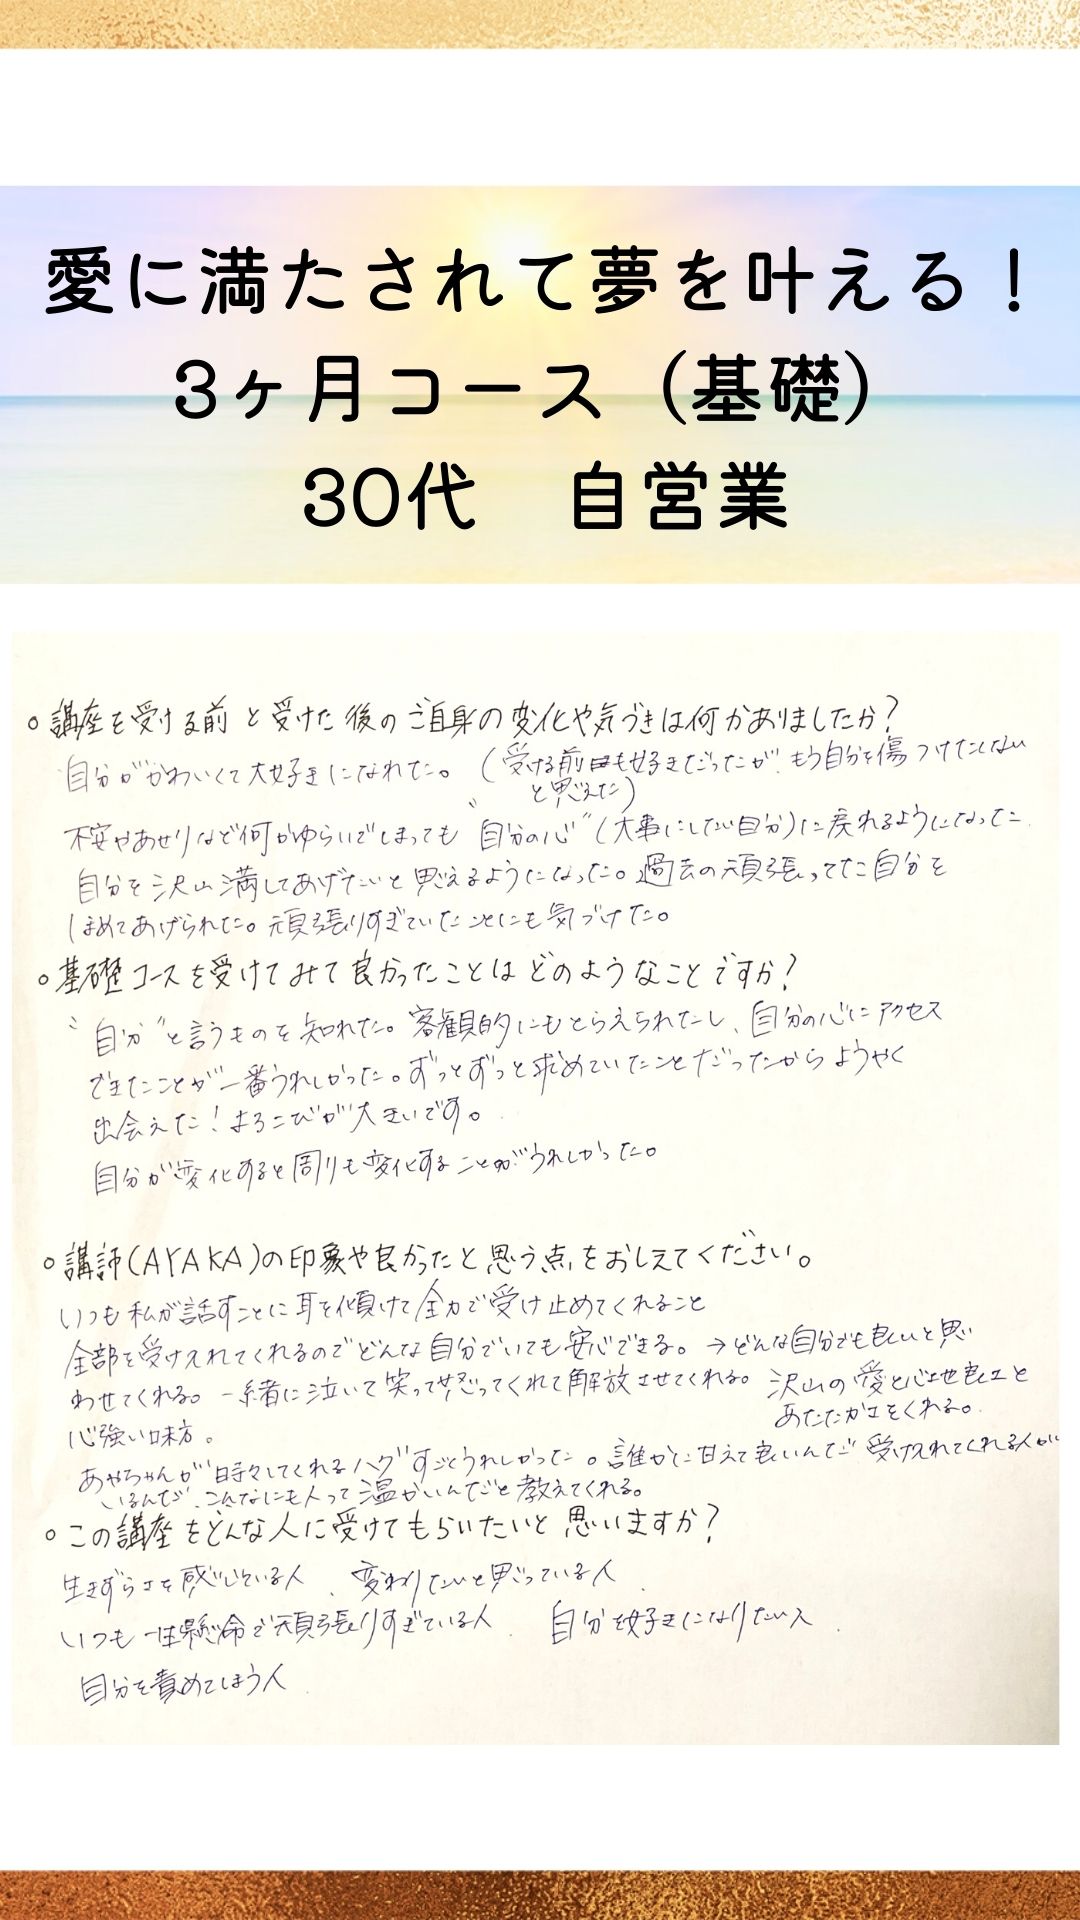 愛に満たされて夢を叶える！
3ヶ月コース（基礎）
30代　自営業
○講座を受ける前と受けた後のご自身の変化や気づきは何かありましたか？
自分がかわいくて大好きになれた。（受ける前も好きだったが、もう自分を傷つけたくない
と思えた）
不安やあせりなど何かゆらいでしまっても〝自分の心〟（大事にしたい自分）に戻れるようになった
自分を沢山満してあげたいと思えるようになった。過去の頑張ってた自分を
ほめてあげられた。頑張りすぎていたことにも気づけた。
○基礎コースを受けてみて良かったことはどのようなことですか？
〝自分〟と言うものを知れた。客観的にもとらえられたし、自分の心にアクセス
できたことが一番うれしかった。ずっとずっと求めていたことだったからようやく
出会えた！よろこびが大きいです。
自分が変化すると周りも変化することがうれしかった。
○講師(AYAKA)の印象や良かったと思う点をおしえてください。
いつも私が話すことに耳を傾けて全力で受け止めてくれること
全部を受け入れてくれるのでどんな自分でいても安心できる。→どんな自分でも良いと思
わせてくれる。一緒に泣いて笑って怒ってくれて解放させてくれる。沢山の愛と心地良さと
あたたかさをくれる。
心強い味方。
あやちゃんが時々してくれるハグすごくうれしかった。誰かに甘えて良いんだ 受け入れてくれる人が
いるんだ、こんなにも人って温かいんだと教えてくれる。
○この講座をどんな人に受けてもらいたいと思いますか？
生きずらさを感じている人、変わりたいと思っている人、
いつも一生懸命で頑張りすぎている人、自分を好きになりたい人、
自分を責めてしまう人